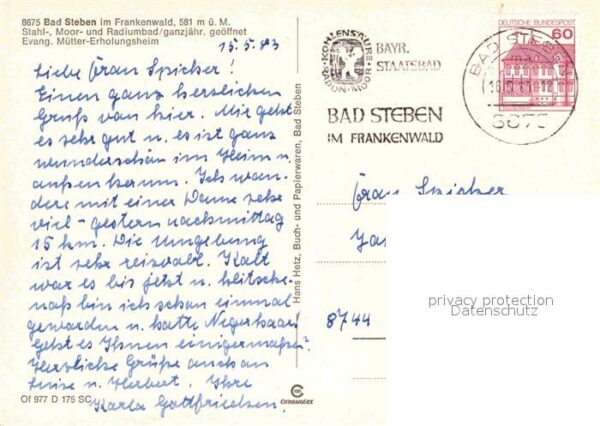 8675 Bad Steben im Frankenwald, 581 m ü. M.
Stahl-, Moor- und Radiumbad/ganzjähr. geöffnet
Evang. Mütter-Erholungsheim
15.5.83
Liebe Frau Spicker!
Einen ganz herzlichen
Gruß von hier. Mir geht
es sehr gut u. es ist ganz
wunderschön im Heim u.
außen herum. Ich wan-
dere mit einer Dame sehr
viel - gestern nachmittag
15 km. Die Umgebung
ist sehr reizvoll. Kalt
war es bis jetzt u. klitsche-
naß bin ich schon einmal
geworden u. hatte Negerhaar!
Geht es Ihnen einigermaßen?
Herzliche Grüße auch an
Luise u. Herbert. Ihre
Karla Gottfriedsen.
Of 977 D 175 SC
CHROMOLUX
Hans Hetz, Buch- und Papierwaren, Bad Steben
KOHLENS'KURE
RADON MOOR
BAYR.
STAATSBAD
BAD STEBEN
IM FRANKENWALD
DEUTSCHE BUNDESPOST
60
BAD STEBEN
8675
Frau Spicker
8744
privacy protection
Datenschutz